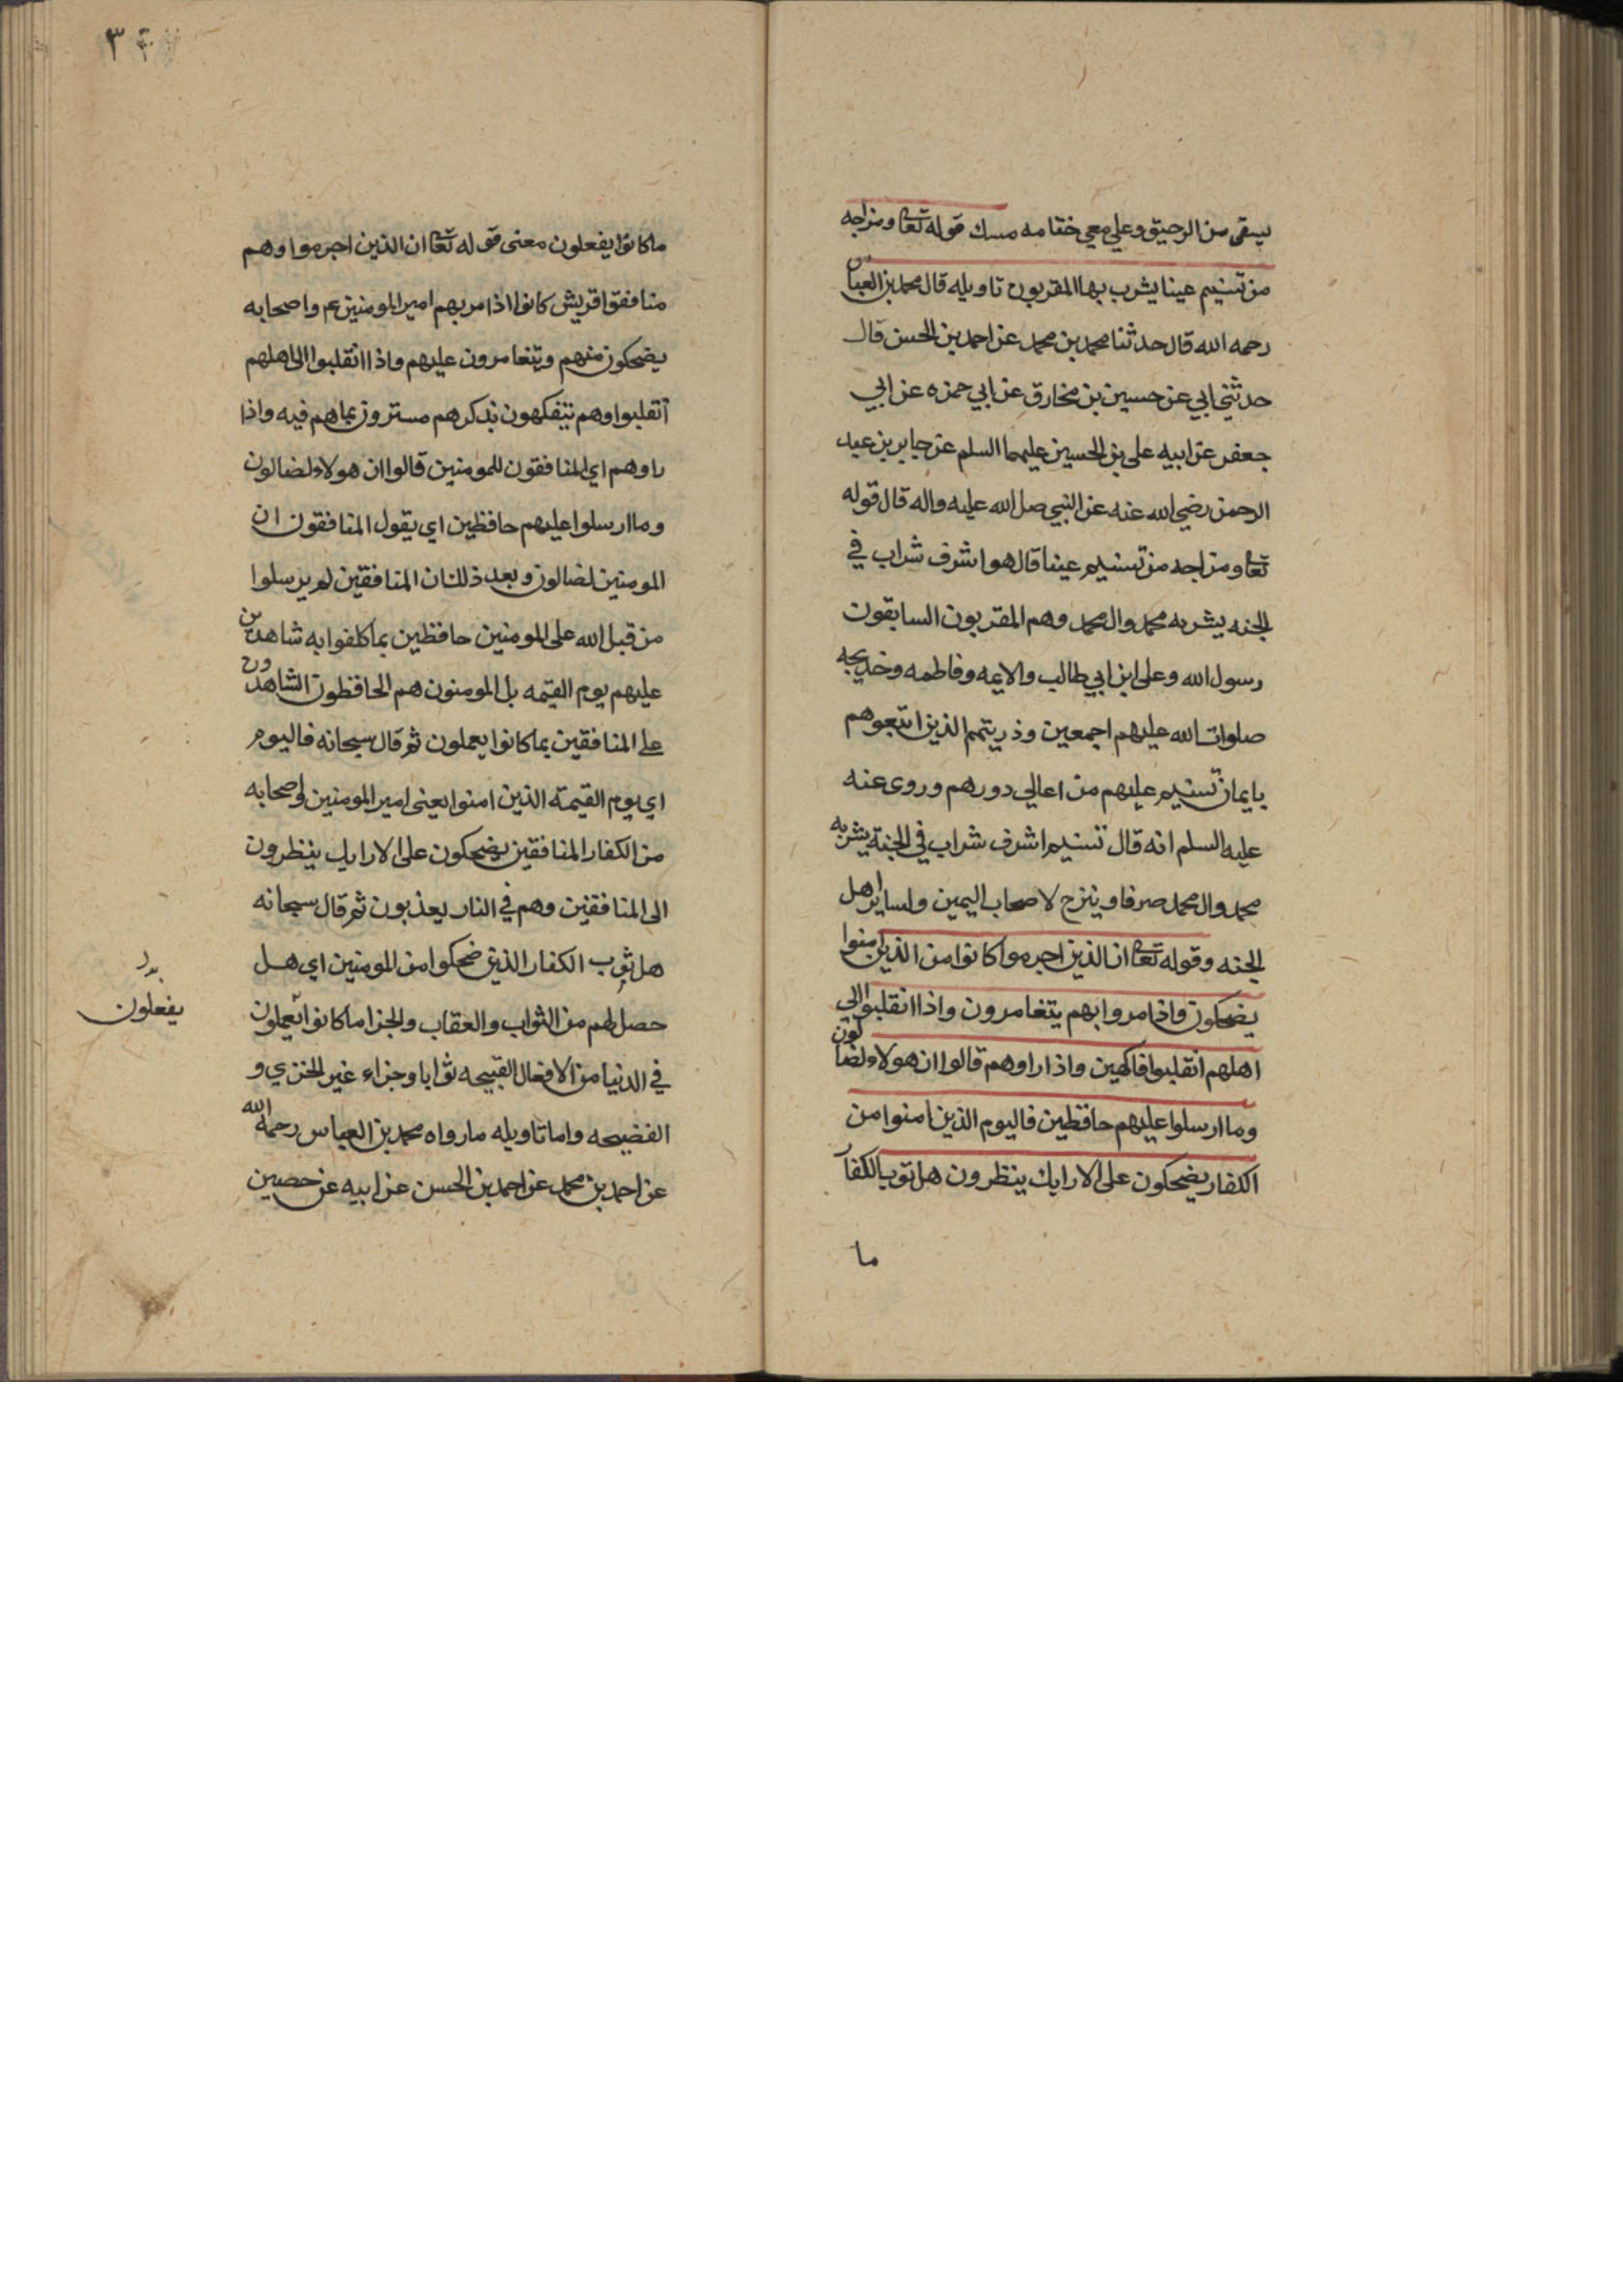 يسقى من الرحيق وعلي معي ختامه مسك قوله تعا ومزاجه
من تسنيم عينا يشرب بها المقربون تاويله قال محمد بن العباس
رحمه الله قال حدثنا محمد بن محمد عن احمد بن الحسن قال
حدثني ابي عن حسين بن مخارق عن ابي حمزه عن ابي
جعفر عن ابيه على بن الحسين عليهما السلم عن جابر بن عبد
الرحمن رضي الله عنه عن النبي صل الله عليه واله قال قوله
تعا ومزاجه من تسنيم عينا قال هو اشرف شراب في
الجنه يشربه محمد وال محمد وهم المقربون السابقون
رسول الله وعلى ابن ابي طالب والايمه وفاطمه وخديجه
صلوات الله عليهم اجمعين وذريتهم الذين اتبعوهم
بايمان تسنيم عليهم من اعالي دورهم وروى عنه
عليه السلم انه قال تسنيم اشرف شراب في الجنة يشربه
محمد وال محمد صرفا ويمزج لاصحاب اليمين ولساير اهل
الجنه وقوله تعا ان الذين اجرموا كانوا من الذين امنوا
يضحكون واذا مروا بهم يتغامرون واذا انقلبوا الي
اهلهم انقلبوا فاكهين واذا راوهم قالوا ان هولاء لضالون
وما ارسلوا عليهم حافظين فاليوم الذين امنوا من
الكفار يضحكون على الارايك ينظرون هل ثوب الكفار
ما
٣
ما كانوا يفعلون معنى قوله تعا ان الذين اجرموا وهم
منافقوا قريش كانوا اذا مر بهم امير المومنين عم واصحابه
يضحكون منهم ويتغامرون عليهم واذا انقلبوا الى اهلهم
انقلبوا وهم يتفكهون بذكرهم مسترون بما هم فيه واذا
راوهم اي المنافقون للمومنين قالوا ان هولاء لضالون
وما ارسلوا عليهم حافظين اي يقول المنافقون ان
المومنين لضالون وبعد ذلك ان المنافقين لم يرسلوا
من قبل الله على المومنين حافظين بما كلفوا به شاهدين
عليهم يوم القيمه بل المومنون هم الحافظون الشاهدون
على المنافقين بما كانوا يعملون ثم قال سبحانه فاليوم
اي يوم القيمة الذين امنوا يعنى امير المومنين واصحابه
من الكفار المنافقين يضحكون على الارايك ينظرون
الى المنافقين وهم في النار يعذبون ثم قال سبحانه
هل ثوب الكفار الذين ضحكوا من المومنين اي هل
حصل لهم من الثواب والعقاب والجزا ما كانوا يعملون
في الدنيا من الافعال القبيحه ثوابا وجزاء غير الخزي و
الفضيحه واما تاويله ما رواه محمد بن العباس رحمه الله
عن احمد بن محمد عن احمد بن الحسن عن ابيه عن حصين
يفعلون